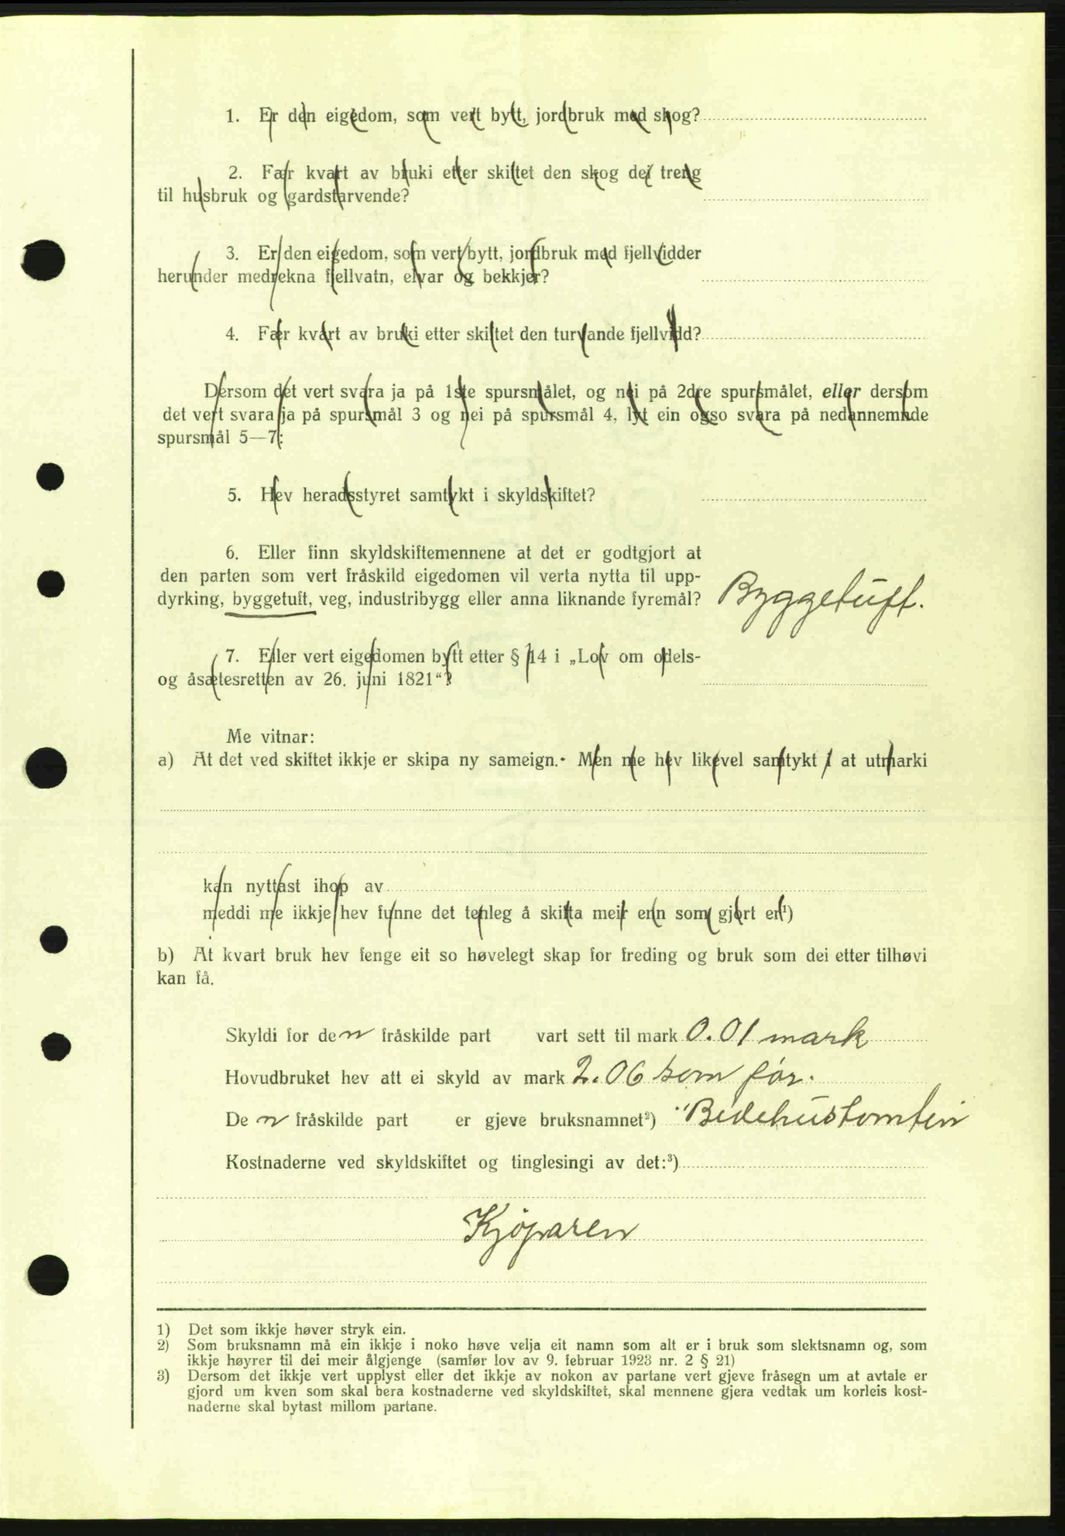 1. Er den eigedom, som vert bytt, jordbruk med skog?
2. Fær kvart av bruki etter skiftet den skog dei treng
til husbruk og gardstarvende?
3. Er den eigedom, som vert bytt, jordbruk med fjellvidder
herunder medrekna fjellvatn, elvar og bekkjer?
4. Fær kvart av bruki etter skiftet den turvande fjellvidd?
Dersom det vert svara ja på 1ste spursmålet, og nei på 2dre spursmålet, eller dersom
det vert svara ja på spursmål 3 og nei på spursmål 4, lyt ein ogso svara på nedannemnde
spursmål 5—7:
5. Hev heradsstyret samtykt i skyldskiftet?
6. Eller finn skyldskiftemennene at det er godtgjort at
den parten som vert fråskild eigedomen vil verta nytta til upp-
dyrking, byggetuft, veg, industribygg eller anna liknande fyremål? Byggetuft.
7. Eller vert eigedomen bytt etter § 14 i „Lov om odels-
og åsætesretten av 26. juni 1821“?
Me vitnar:
a) At det ved skiftet ikkje er skipa ny sameign. Men me hev likevel samtykt i at utmarki
kan nyttast ihop av
meddi me ikkje hev funne det tenleg å skifta meir enn som gjort er¹)
b) At kvart bruk hev fenge eit so høvelegt skap for freding og bruk som dei etter tilhøvi
kan få.
Skyldi for den fråskilde part vart sett til mark 0.01 mark
Hovudbruket hev att ei skyld av mark 2.06 som før.
Den fråskilde part er gjeve bruksnamnet²) "Bedehustomten
Kostnaderne ved skyldskiftet og tinglesingi av det:³)
Kjøparen
1) Det som ikkje høver stryk ein.
2) Som bruksnamn må ein ikkje i noko høve velja eit namn som alt er i bruk som slektsnamn og, som
ikkje høyrer til dei meir ålgjenge (samfør lov av 9. februar 1923 nr. 2 § 21)
3) Dersom det ikkje vert upplyst eller det ikkje av nokon av partane vert gjeve fråsegn um at avtale er
gjord um kven som skal bera kostnaderne ved skyldskiftet, skal mennene gjera vedtak um korleis kost-
naderne skal bytast millom partane.